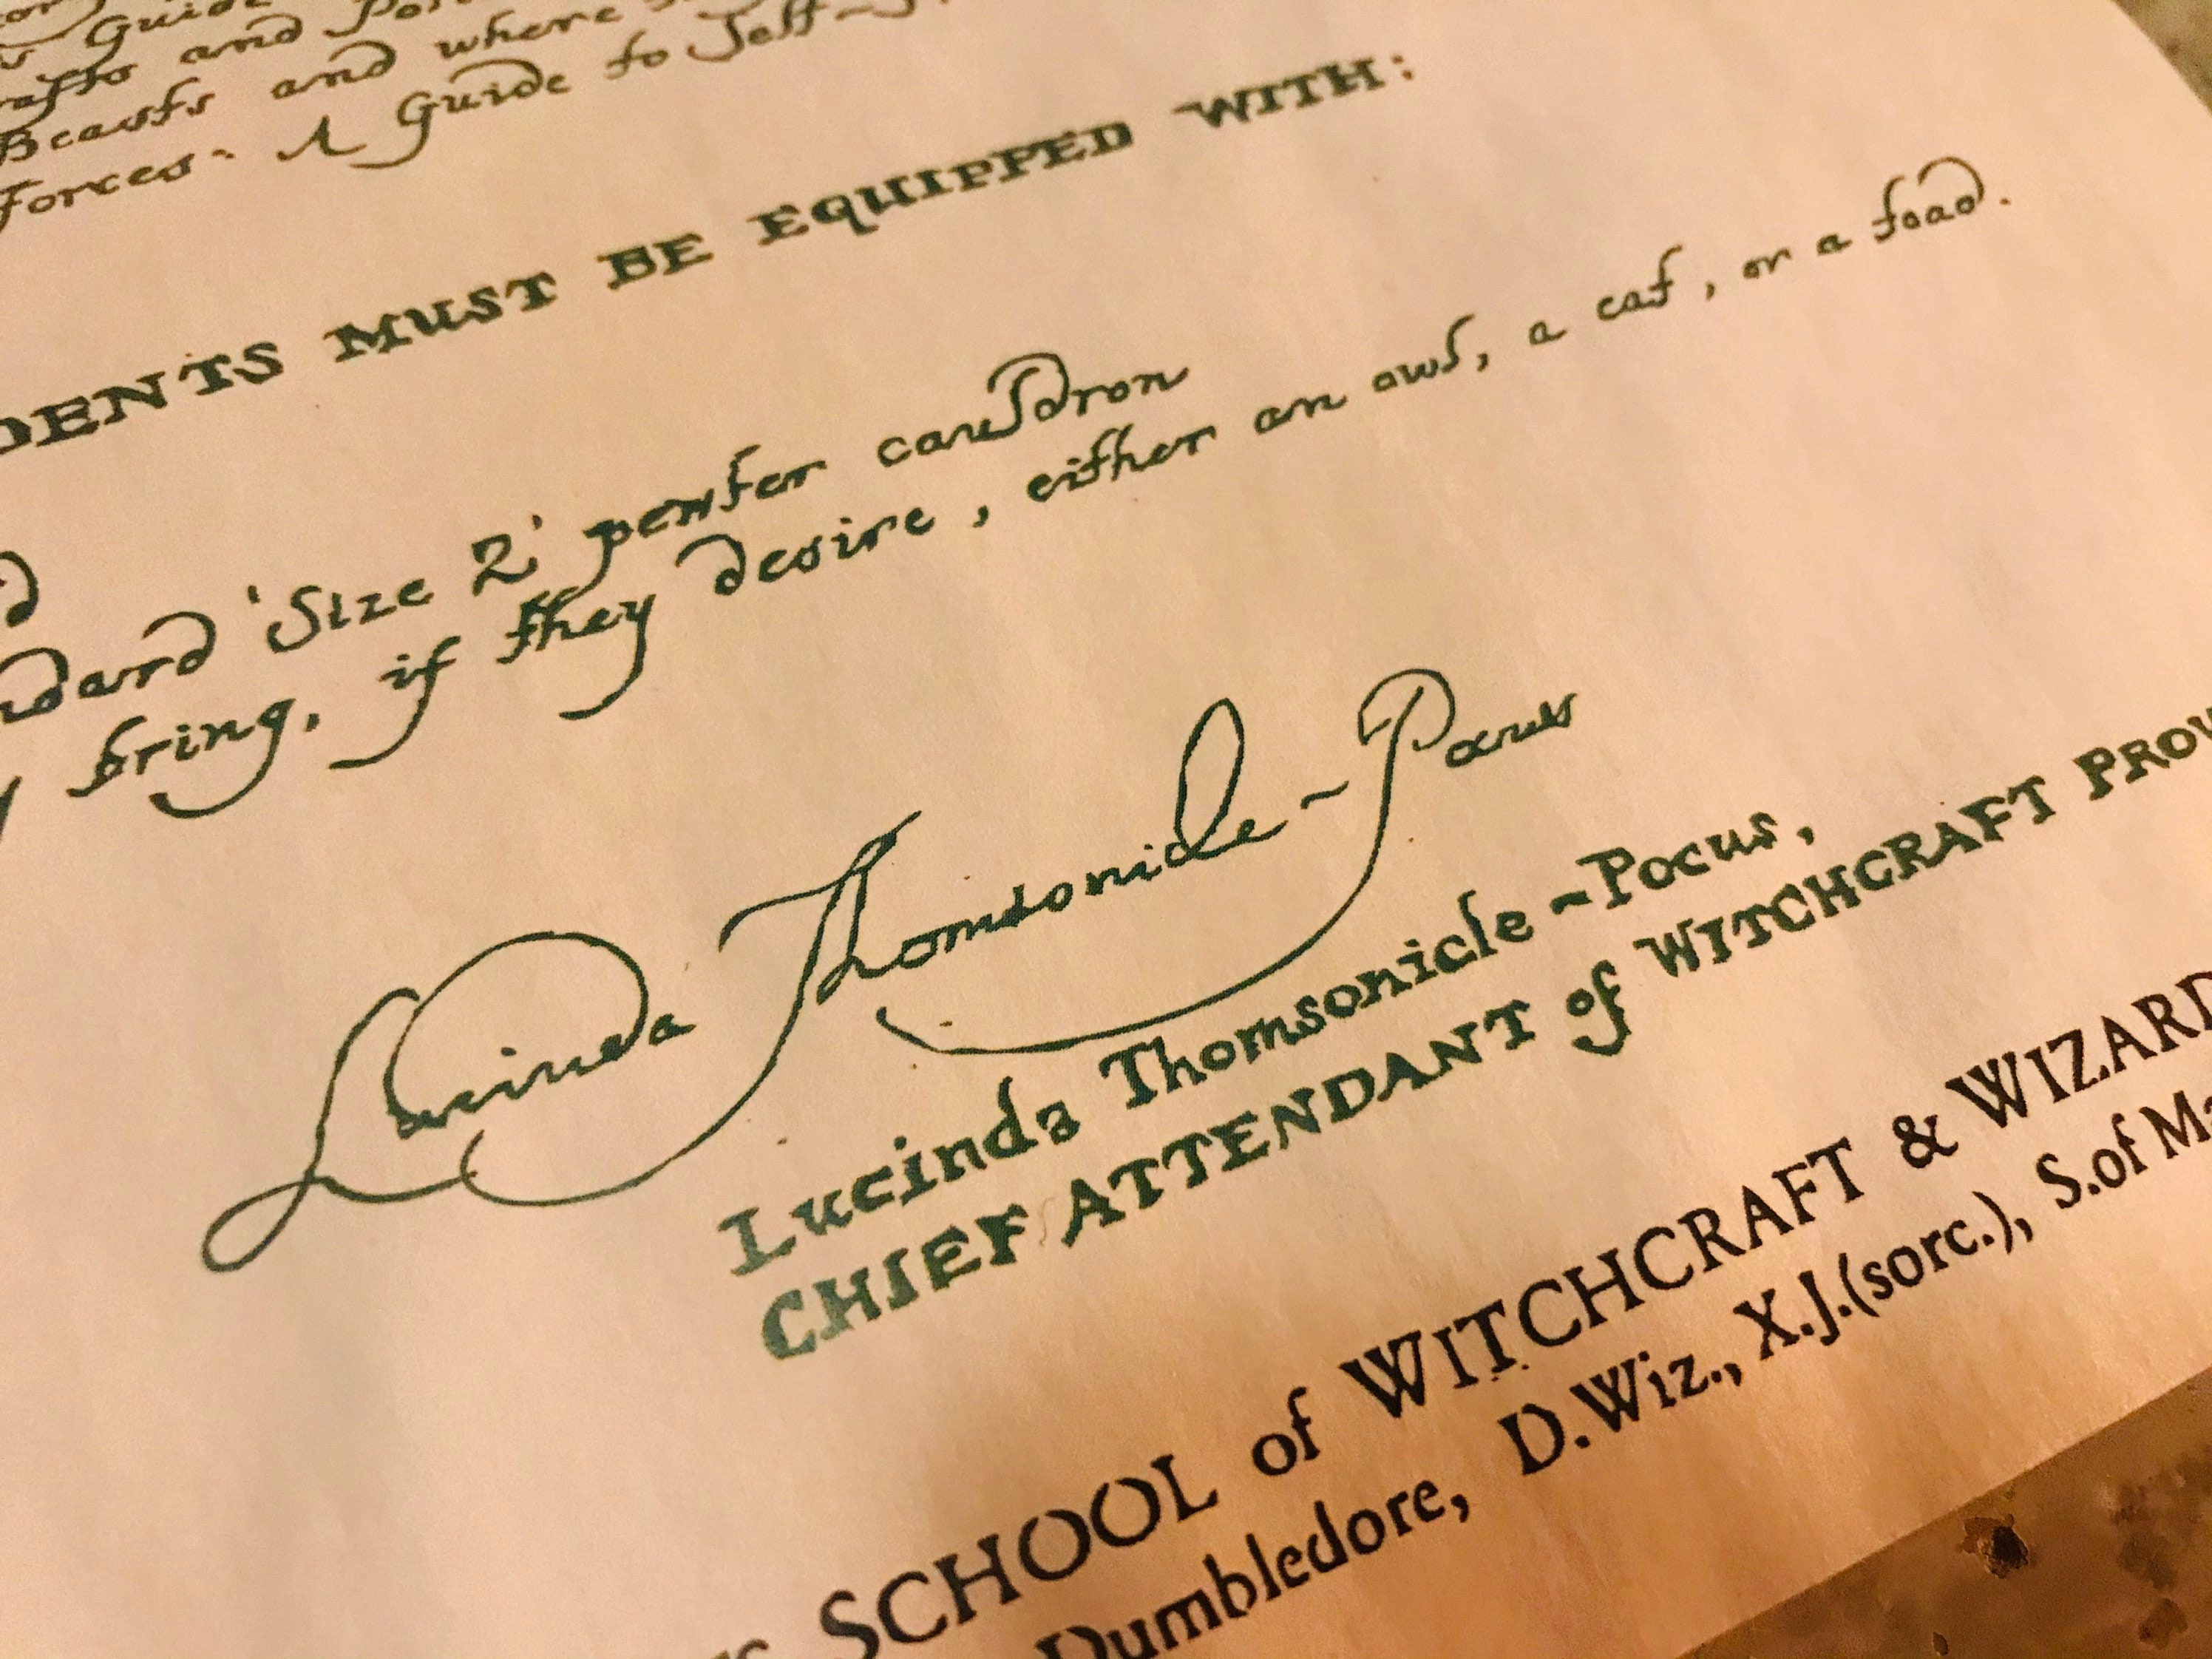 Guide
and
Beasts and where
Forces: A Guide to Self-
DENTS MUST BE EQUIPPED WITH:
ndard 'Size 2' pewter cauldron
bring, if they desire, either an owl, a cat, or a toad.
Lucinda Thomsonicle-Pocus
Lucinda Thomsonicle-Pocus,
CHIEF ATTENDANT of WITCHCRAFT PROV
SCHOOL of WITCHCRAFT & WIZARD
Dumbledore, D.Wiz., X.J.(sorc.), S.of Ma